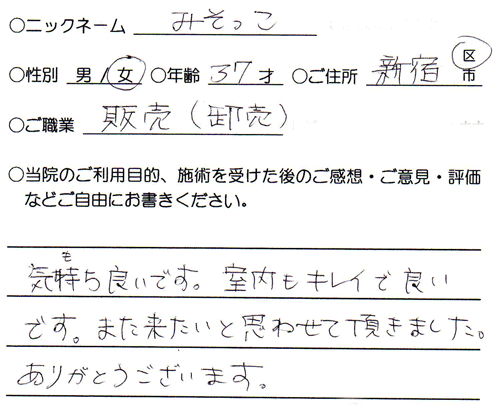 ○ニックネーム みそっこ
○性別 男 / 女 ○年齢 37才 ○ご住所 新宿 区 市
○ご職業 販売(卸売)
○当院のご利用目的、施術を受けた後のご感想・ご意見・評価
などご自由にお書きください。
も
気持ち良いです。室内もキレイで良い
です。また来たいと思わせて頂きました。
ありがとうございます。